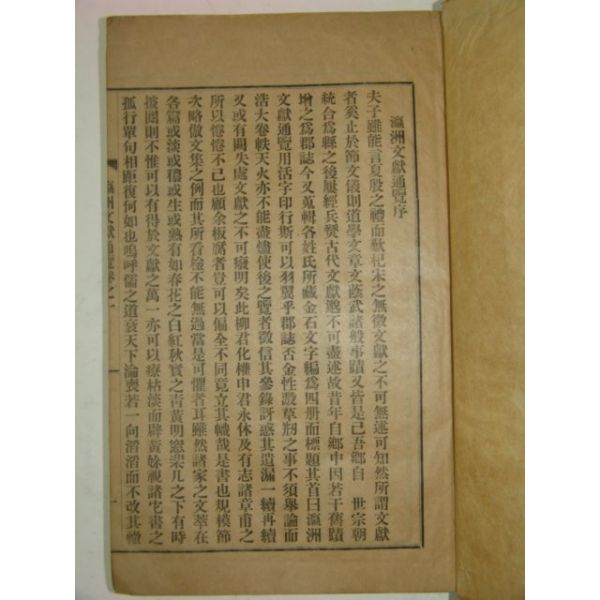 瀛洲文獻通覽序
夫子雖能言夏殷之禮而歎杞宋之無徵文獻之不可無述可知然所謂文獻
者奚止於節文儀則道學文章文蔭武諸般事蹟又皆是已吾鄕自 世宗朝
統合爲縣之後屢經兵燹古代文獻邈不可盡述故昔年自鄕中因若干舊蹟
增之爲郡誌今又蒐輯各姓氏所藏金石文字編爲四册而標題其首曰瀛洲
文獻通覽用活字印行斯可以羽翼乎郡誌否金性澱草剏之事不須擧論而
浩大卷帙天火亦不能盡燼使後之覽者徵信其參錄訝惑其遺漏一續再續
又或有闕失處文獻之不可癈明矣此柳君化權申君永休及有志諸章甫之
所以惓惓不己也顧余板腐者豈可以偏全不同竟立其幟哉是書也規模節
次略倣文集之例而其所看檢不能無過當是可懼者耳雖然諸家之文萃在
各篇或淡或穠或生或熟有如春花之白紅秋實之靑黃明窓棐几之下有時
披閱則不惟可以有得於文獻之萬一亦可以療枯淡而辟黃姝視諸它書之
孤行單句相距復何如也嗚呼儒之道衰天下淪喪若一向滔滔而不改其轍
瀛洲文獻通覽卷之一